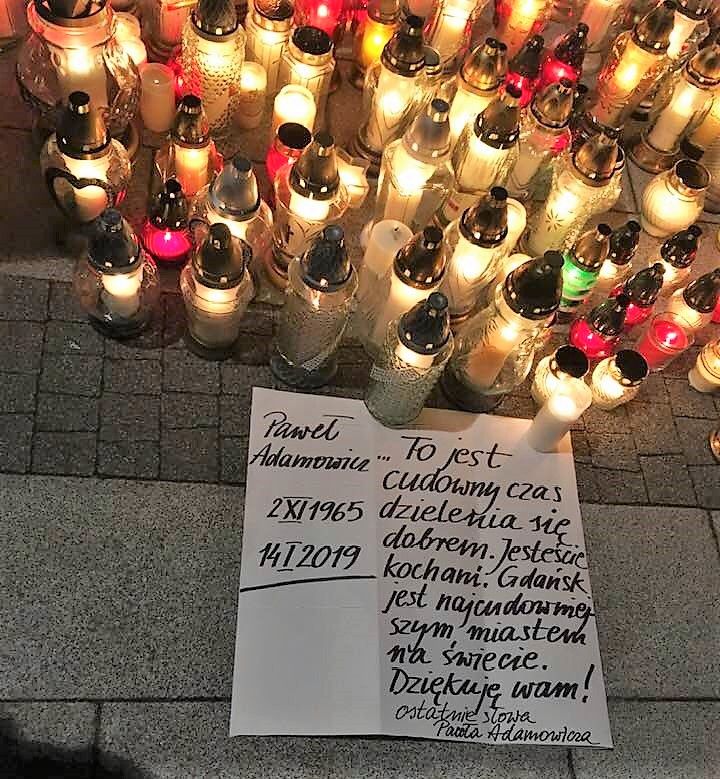 Paweł
Adamowicz
2 XI 1965
14 I 2019
... To jest
cudowny czas
dzielenia się
dobrem. Jesteście
kochani. Gdańsk
jest najcudowniej-
szym miastem
na świecie.
Dziękuję wam!
ostatnie słowa
Pawła Adamowicza